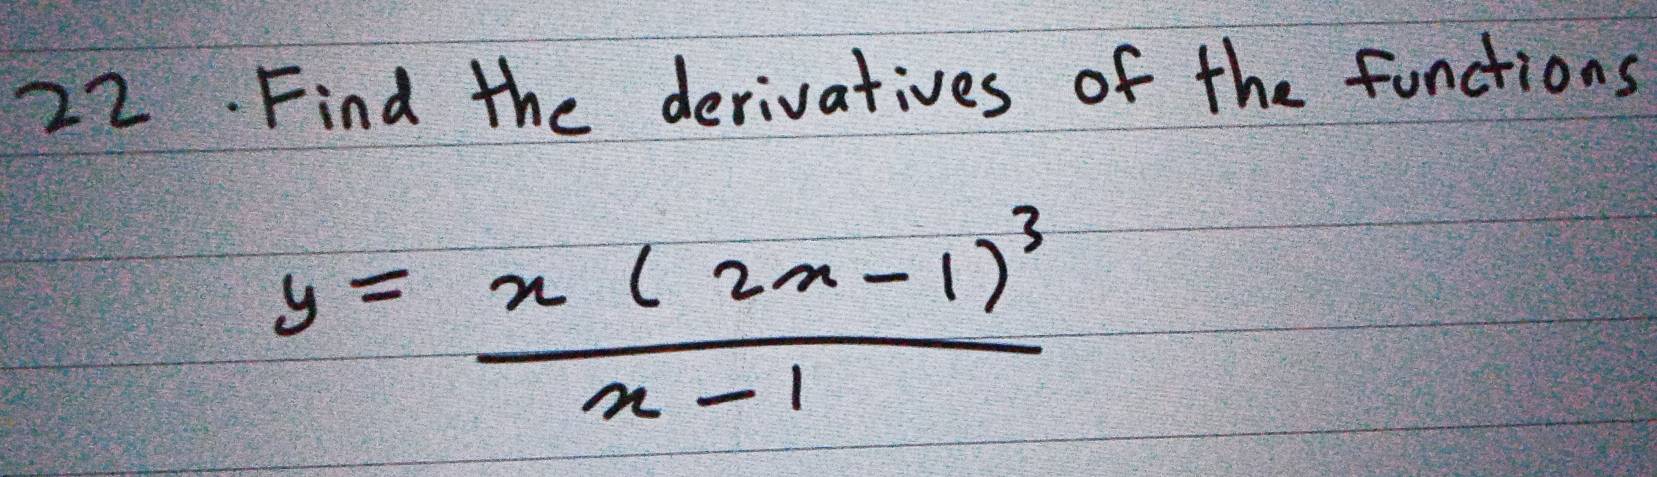 22. Find the derivatives of the functions
y = x (2x-1)³
x-1